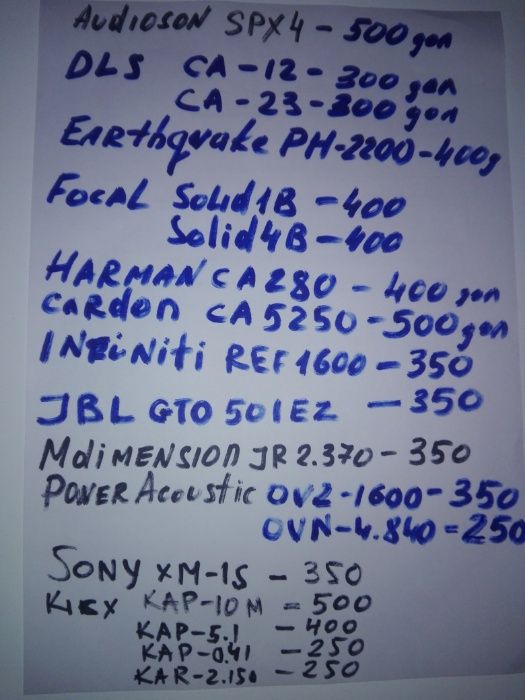 AUDIOSON SPX4 - 500 дол
DLS CA-12-300 дол
CA-23-300 дол
EARthquake PH-2200-400д
FOCAL Solid 1B - 400
Solid 4B - 400
HARMAN CA280 - 400 дол
CARDON CA5250 - 500 дол
INFiNiti REF1600 - 350
JBL GTO 501EZ - 350
MdiMENSION JR2.370 - 350
POWER Acoustic OV2-1600-350
OVN-4.840=250
SONY XM-1S - 350
KICX KAP-10M = 500
KAP-5.1 - 400
KAP-0.41 - 250
KAR-2.150 - 250